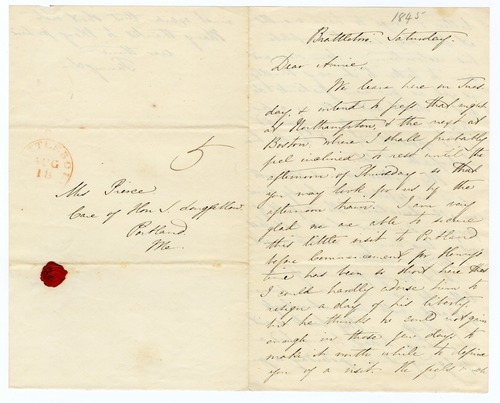 1845
Brattleboro' Saturday.
Dear Annie,
We leave here on Tues
day, & intend to pass that night
at Northampton, & the next at
Boston, where I shall probably
feel inclined to rest until the
afternoon of Thursday – so that
you may look for us by the
afternoon train. I am very
glad we are able to secure
this little visit to Portland
before Commencement for Henry's
time has been so short here that
I could hardly advise him to
resign a day of his liberty,
but he thinks he could not gain
enough in those few days to
make it worth while to deprive
you of a visit. He feels
TTLEBORO
AUG
18
5
Mrs Pierce
Care of Hon. S. Longfellow
Portland
Me.